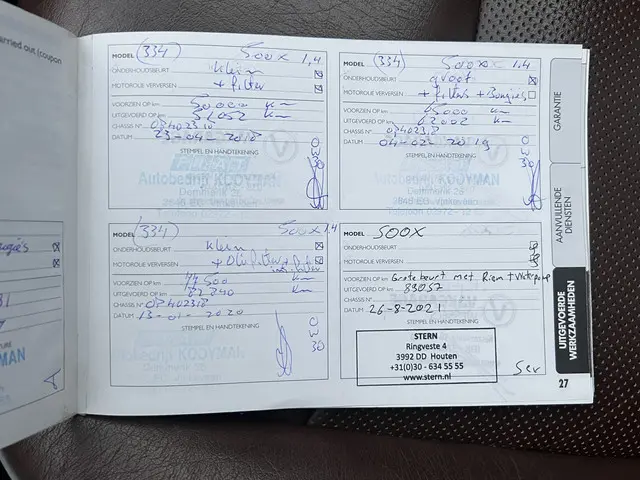 arried out (coupon
MODEL (334) 500X 1,4
ONDERHOUDSBEURT klein
MOTOROLIE VERVERSEN + filter
VOORZIEN OP km 50000 km
UITGEVOERD OP km 51052 km
CHASSIS N° OP402318
DATUM 23-04-2018
STEMPEL EN HANDTEKENING
Autobedrijf KOOYMAN
03
30
MODEL (334) 500X 1,4
ONDERHOUDSBEURT groot
MOTOROLIE VERVERSEN + filters + Bougies
VOORZIEN OP km 65000 km
UITGEVOERD OP km 62002 km
CHASSIS N° OP402318
DATUM 04-02-2019
STEMPEL EN HANDTEKENING
03
30
MODEL (334) 500X 1,4
ONDERHOUDSBEURT klein
MOTOROLIE VERVERSEN + Oliefilter +
VOORZIEN OP km 77500 km
UITGEVOERD OP km km
CHASSIS N° OP402318
DATUM 13-01-2020
STEMPEL EN HANDTEKENING
03
30
MODEL 500X
ONDERHOUDSBEURT
MOTOROLIE VERVERSEN
VOORZIEN OP km Grote beurt met Riem + Waterpomp
UITGEVOERD OP km 83057
CHASSIS N°
DATUM 26-8-2021
STEMPEL EN HANDTEKENING
STERN
Ringveste 4
3992 DD Houten
+31(0)30 - 634 55 55
www.stern.nl
GARANTIE
AANVULLENDE DIENSTEN
UITGEVOERDE WERKZAAMHEDEN
27
MAN